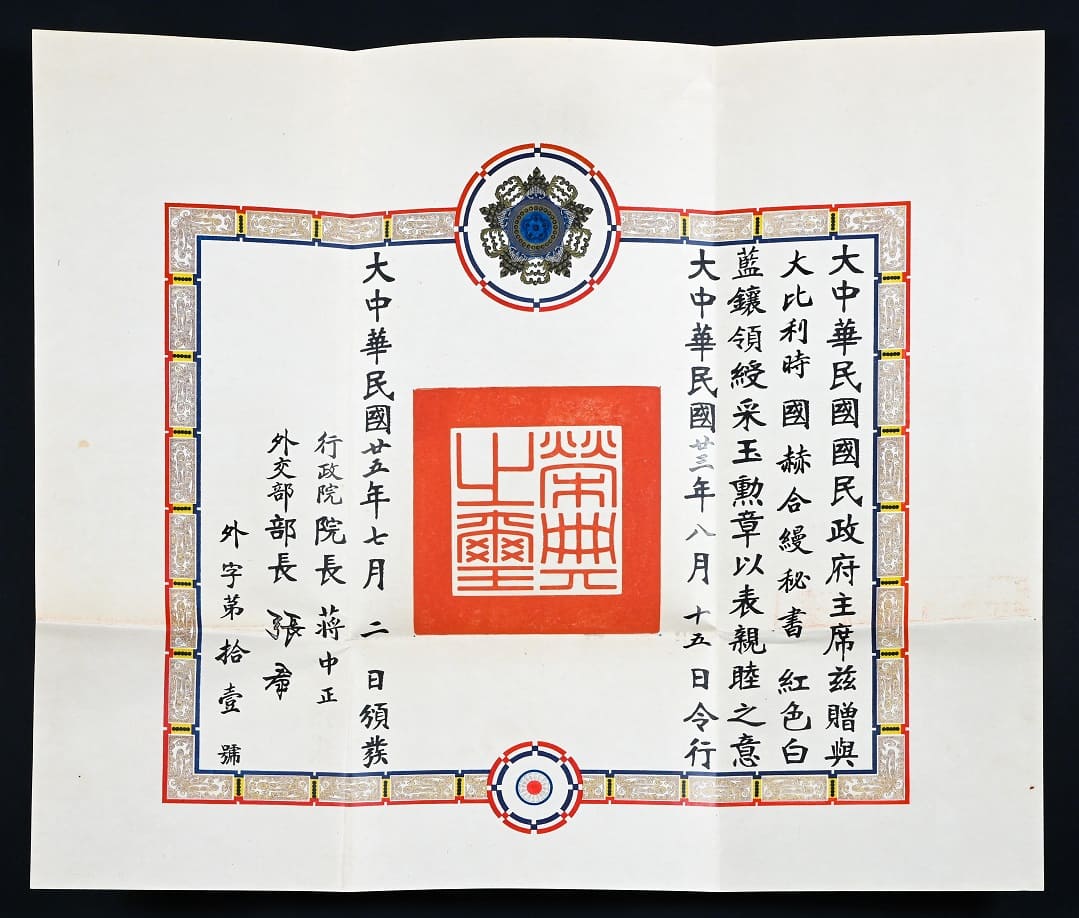 大中華民國國民政府主席茲贈與
大比利時國赫合縵秘書 紅色白
藍鑲領綬采玉勳章以表親睦之意
大中華民國廿三年八月十五日令行
榮典之璽
大中華民國廿五年七月二日頒發
行政院院長蔣中正
外交部部長張羣
外字第拾壹號